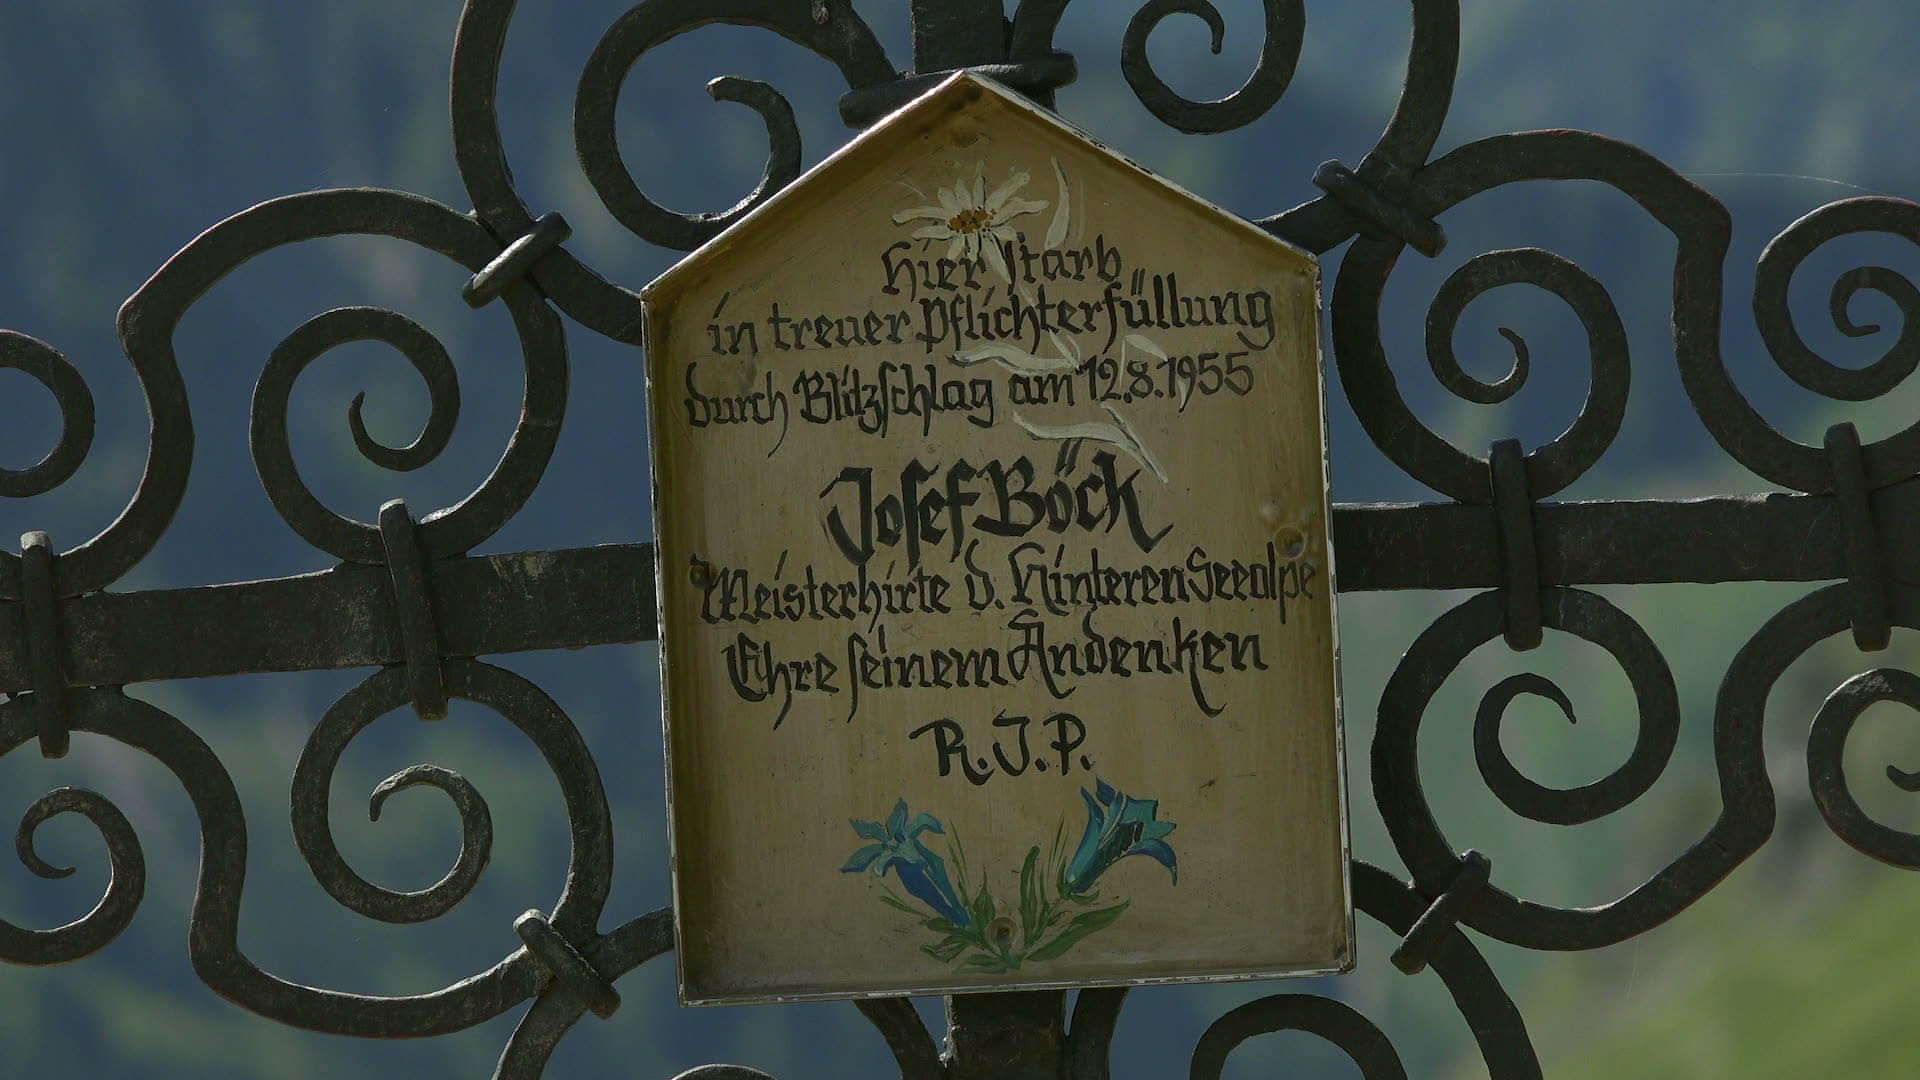 Hier starb
in treuer Pflichterfüllung
durch Blitzschlag am 12.8.1955
Josef Böck
Meisterhirte d. Hinteren Seealpe
Ehre seinem Andenken
R.I.P.